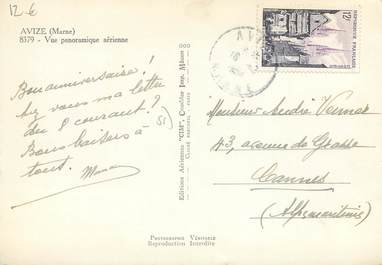 12-6
AVIZE (Marne)
8379 - Vue panoramique aérienne
Bon anniversaire!
vous ma lettre
du 8 courant?
Bons baisers à
tous.
51
Editions Aériennes "CIM", Combier Imp. Mâcon
12F
RÉPUBLIQUE FRANÇAISE
AVIZE
Monsieur André
43, avenue de Grasse
Cannes
(Alpes maritimes)
Photographie Véritable
Reproduction Interdite